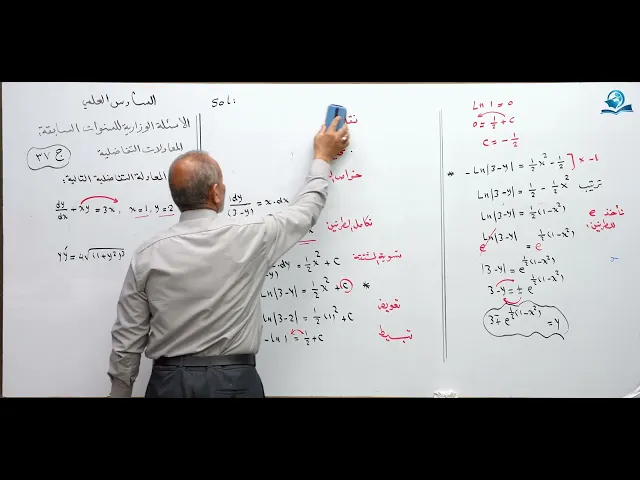 السادس العلمي
الاسئلة الوزارية للسنوات السابقة:
المعادلات التفاضلية
ج ٣٧
المعادلة التفاضلية التالية:
dy/dx + xy = 3x , x = 1 , y = 2
yý = 4√((1+y²)³)
Sol:
dy/(3-y) = x·dx
نكامل الطرفين
= 1/2 x² + C
Ln|3-y| = 1/2 x² + C *
تعويض
Ln|3-2| = 1/2 (1)² + C
تبسيط
-Ln 1 = 1/2 + C
Ln 1 = 0
0 = 1/2 + C
C = -1/2
* -Ln|3-y| = 1/2 x² - 1/2 ] x -1
Ln|3-y| = 1/2 - 1/2 x² ترتيب
Ln|3-y| = 1/2 (1-x²) نأخذ e للطرفين:
e^(Ln|3-y|) = e^(1/2(1-x²))
|3-y| = e^(1/2(1-x²))
3-y = ± e^(1/2(1-x²))
3 ∓ e^(1/2(1-x²)) = y